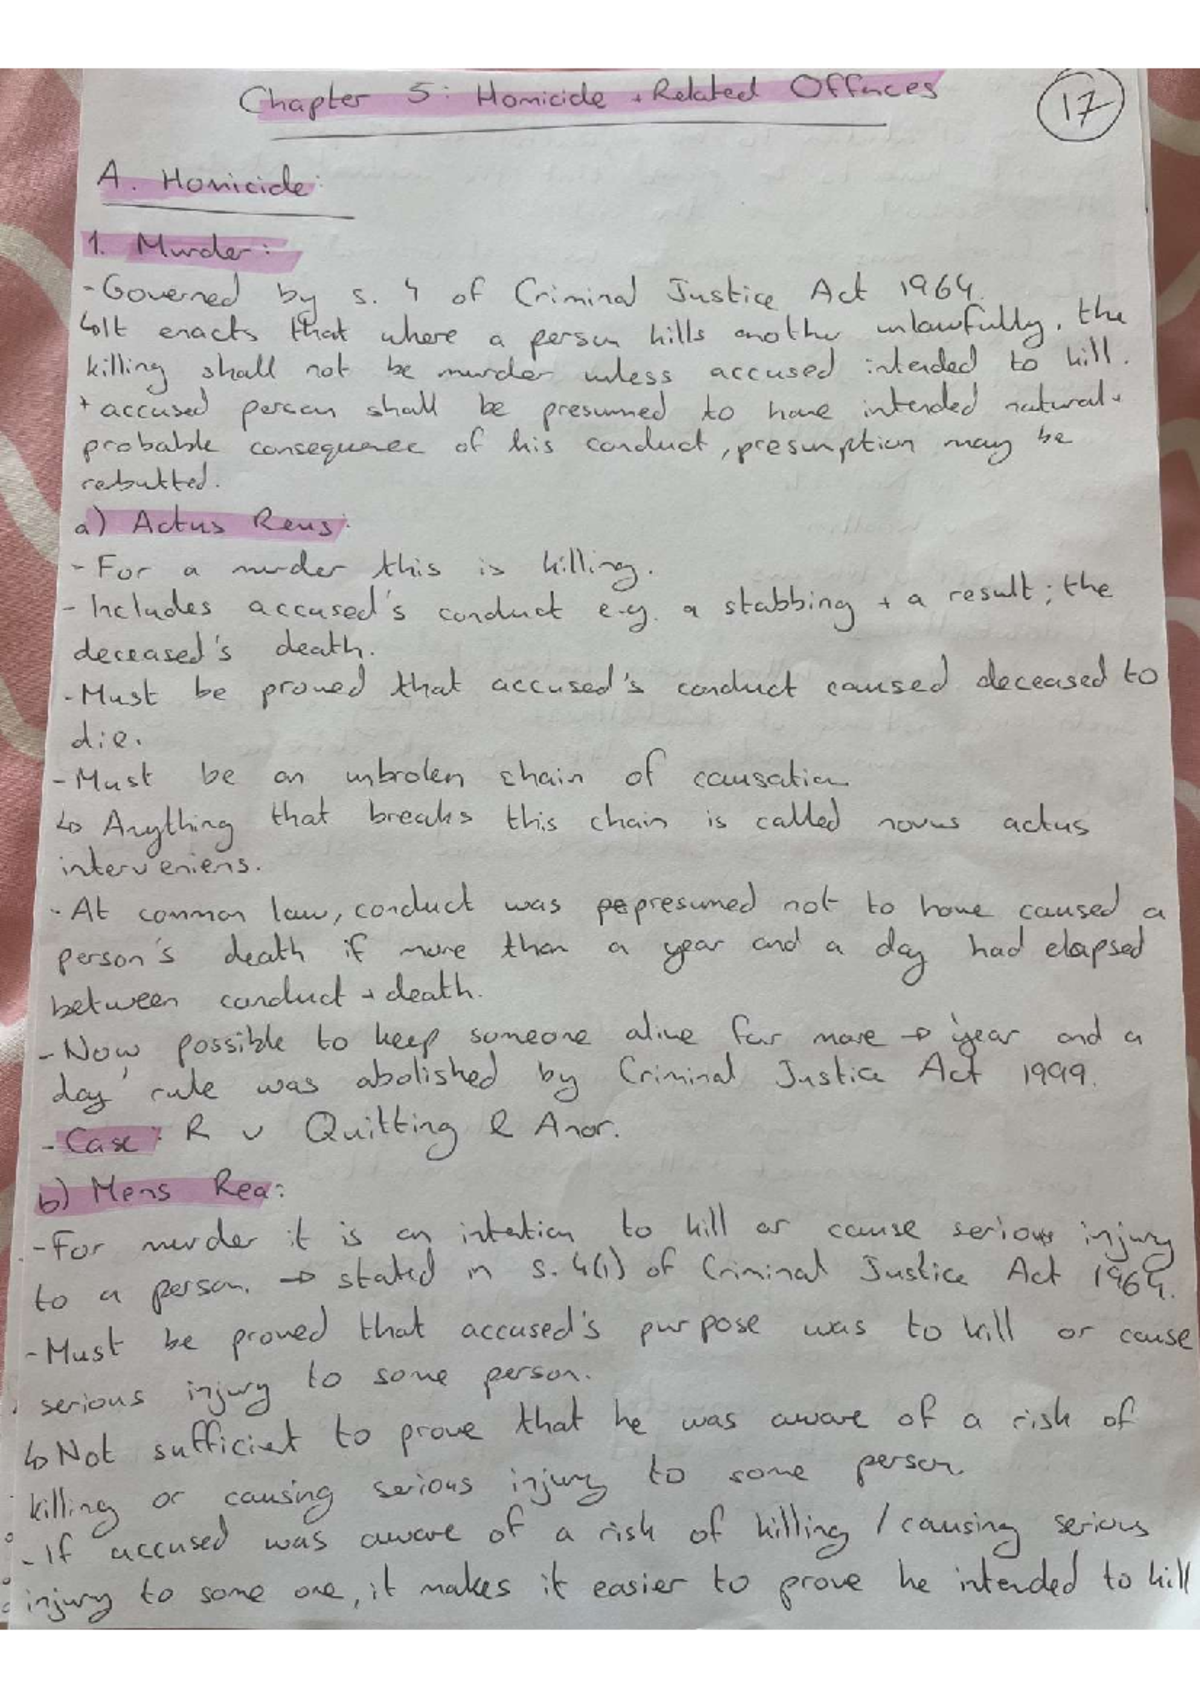 Chapter 5: Homicide + Related Offnces
17
A. Homicide:
1. Murder:
- Governed by s. 4 of Criminal Justice Act 1964.
↳ It enacts that where a person kills another unlawfully, the
killing shall not be murder unless accused intended to kill.
+ accused person shall be presumed to have intended natural +
probable consequence of his conduct, presumption may be
rebutted.
a) Actus Reus:
- For a murder this is killing.
- Includes accused's conduct e.g. a stabbing + a result; the
deceased's death.
- Must be proved that accused's conduct caused deceased to
die.
- Must be an unbroken chain of causation
↳ Anything that breaks this chain is called novus actus
interveniens.
- At common law, conduct was presumed not to have caused a
person's death if more than a year and a day had elapsed
between conduct + death.
- Now possible to keep someone alive for more → 'year and a
day' rule was abolished by Criminal Justice Act 1999.
- Case: R v Quitting & Anor.
b) Mens Rea:
- For murder it is an intention to kill or cause serious injury
to a person. → stated in s. 4(1) of Criminal Justice Act 1964.
- Must be proved that accused's purpose was to kill or cause
serious injury to some person.
↳ Not sufficient to prove that he was aware of a risk of
killing or causing serious injury to some person.
- If accused was aware of a risk of killing / causing serious
injury to some one, it makes it easier to prove he intended to kill